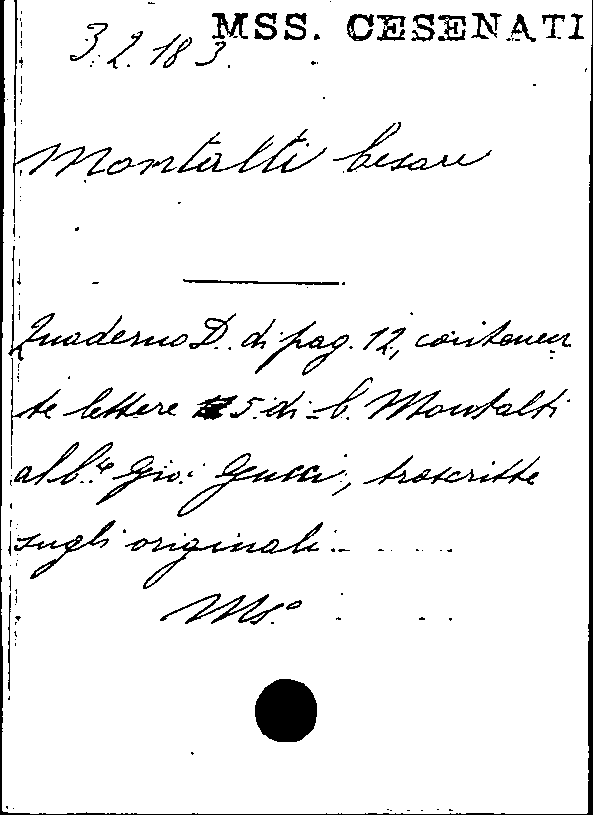 MSS. CESENATI
3.2.183.
Montalti Cesare
Quaderno D. di pag. 12, contenen
te lettere 5 di C. Montalti
al C.te Gio: Gucci, trascritte
sugli originali
Ms.o